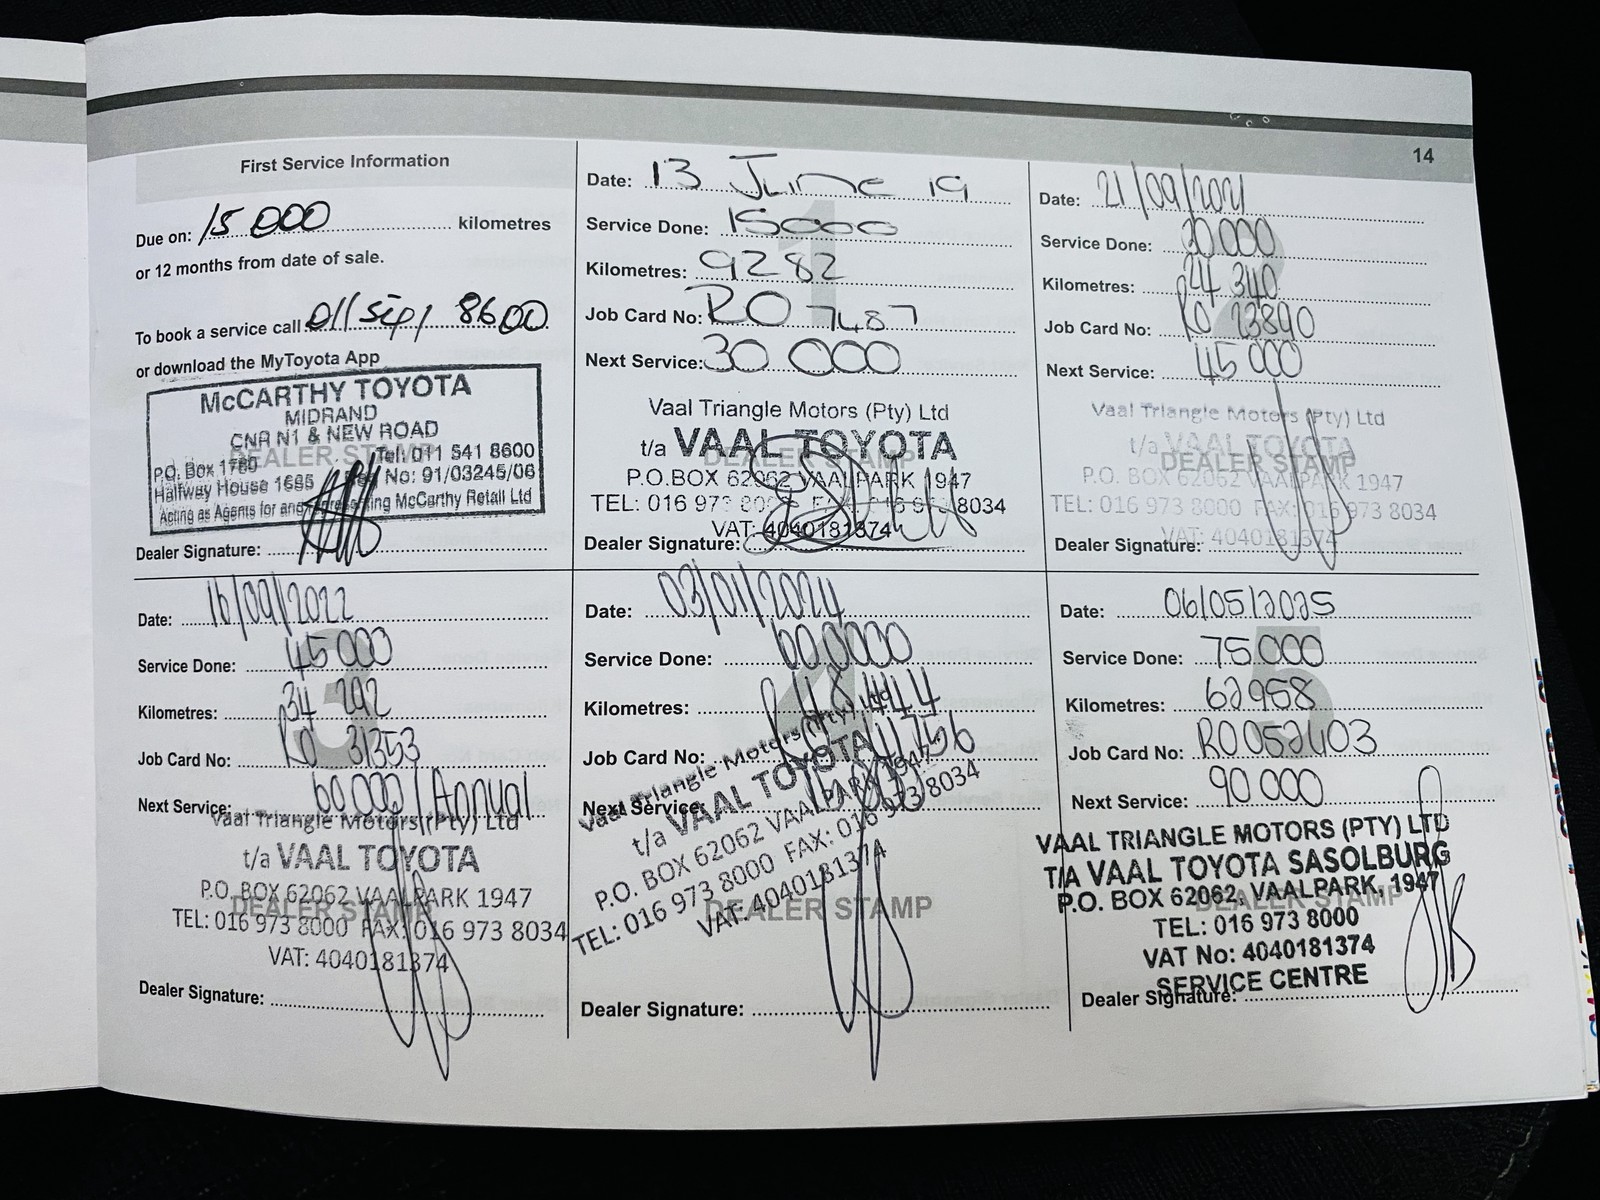 14
First Service Information
Due on: 15 000 kilometres
or 12 months from date of sale.
To book a service call 011 541 8600
or download the MyToyota App
McCARTHY TOYOTA
MIDRAND
CNR N1 & NEW ROAD
Tel: 011 541 8600
P.O. Box 1780
No: 91/03245/06
Halfway House 1685
Acting as Agents for and representing McCarthy Retail Ltd
DEALER STAMP
Dealer Signature:
1
Date: 13 June 19
Service Done: 15000
Kilometres: 9282
Job Card No: RO 7487
Next Service: 30 000
Vaal Triangle Motors (Pty) Ltd
t/a VAAL TOYOTA
DEALER STAMP
P.O.BOX 62062 VAALPARK 1947
TEL: 016 973 8000 FAX: 016 973 8034
VAT: 4040181374
Dealer Signature:
2
Date: 21/09/2021
Service Done: 30 000
Kilometres: 24 340
Job Card No: RO 23890
Next Service: 45 000
Vaal Triangle Motors (Pty) Ltd
t/a VAAL TOYOTA
DEALER STAMP
P.O. BOX 62062 VAALPARK 1947
TEL: 016 973 8000 FAX: 016 973 8034
VAT: 4040181374
Dealer Signature:
3
Date: 16/09/2022
Service Done: 45 000
Kilometres: 34 292
Job Card No: RO 31353
Next Service: 60 000 / Annual
Vaal Triangle Motors (Pty) Ltd
t/a VAAL TOYOTA
P.O. BOX 62062 VAALPARK 1947
DEALER STAMP
TEL: 016 973 8000 FAX: 016 973 8034
VAT: 4040181374
Dealer Signature:
4
Date: 03/01/2024
Service Done: 60.0000
Kilometres: 48444
Job Card No:
Next Service:
Vaal Triangle Motors (Pty) Ltd
t/a VAAL TOYOTA
P.O. BOX 62062 VAALPARK 1947
TEL: 016 973 8000 FAX: 016 973 8034
VAT: 4040181374
DEALER STAMP
Dealer Signature:
5
Date: 06/05/2025
Service Done: 75 000
Kilometres: 62958
Job Card No: RO052403
Next Service: 90 000
VAAL TRIANGLE MOTORS (PTY) LTD
T/A VAAL TOYOTA SASOLBURG
P.O. BOX 62062, VAALPARK, 1947
DEALER STAMP
TEL: 016 973 8000
VAT No: 4040181374
SERVICE CENTRE
Dealer Signature: